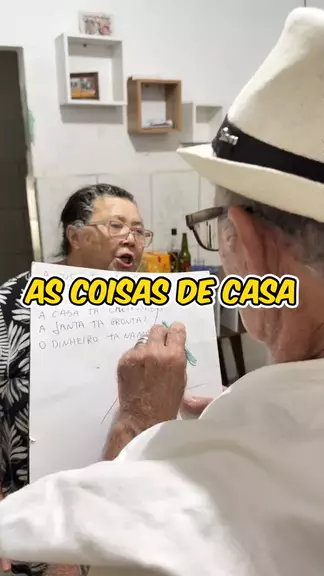 AS COISAS DE CASA
A CASA TA
A JANTA TA PRONTA?
O DINHEIRO TA NA